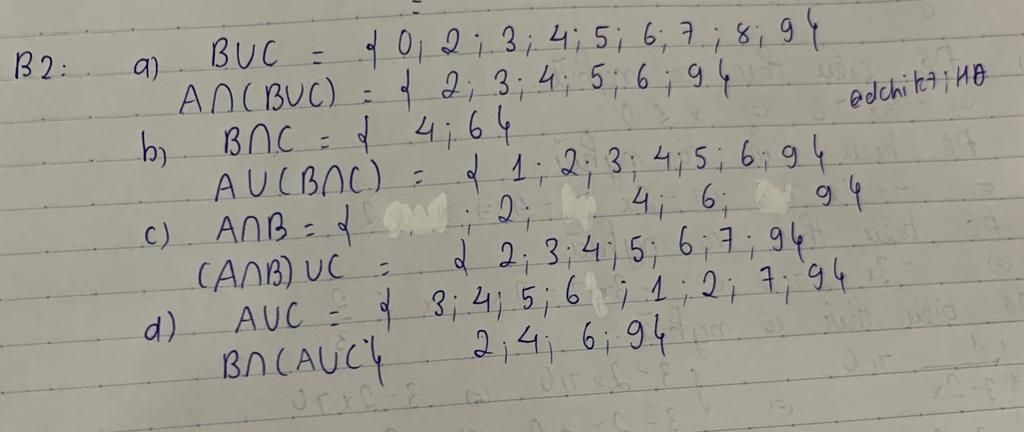 B2: a) B∪C = { 0, 2; 3; 4; 5; 6; 7; 8; 9 }
A∩(B∪C) = { 2; 3; 4; 5; 6; 9 }
b) B∩C = { 4; 6 }
A∪(B∩C) = { 1; 2; 3; 4; 5; 6; 9 }
c) A∩B = { ; 2; 4; 6; 9 }
(A∩B)∪C = { 2; 3; 4; 5; 6; 7; 9 }
d) A∪C = { 3; 4; 5; 6; 1; 2; 7; 9 }
B∩(A∪C } 2; 4; 6; 9 }